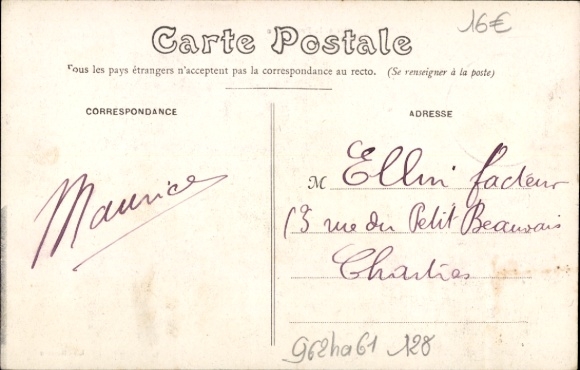 16€
Carte Postale
Tous les pays étrangers n'acceptent pas la correspondance au recto. (Se renseigner à la poste)
CORRESPONDANCE
ADRESSE
Maurice
M Ellin facteur
13 rue du Petit Beauvais
Chartres
962ha61 128